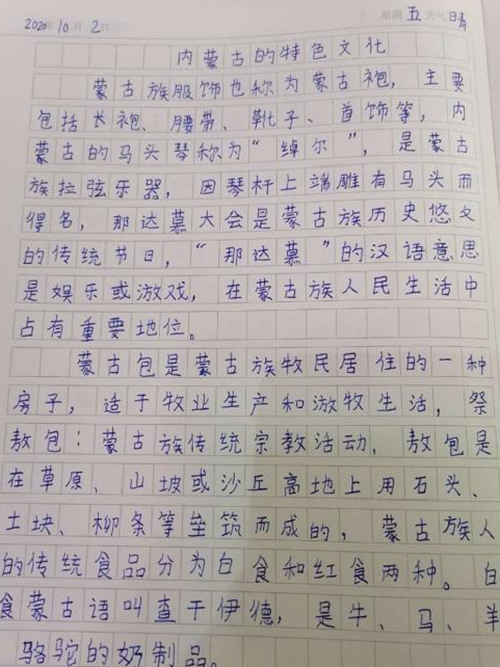 2020年10月2日 星期五 天气晴
内蒙古的特色文化
蒙古族服饰也称为蒙古袍，主要
包括长袍、腰带、靴子、首饰等，内
蒙古的马头琴称为“绰尔”，是蒙古
族拉弦乐器，因琴杆上端雕有马头而
得名，那达慕大会是蒙古族历史悠久
的传统节日，“那达慕”的汉语意思
是娱乐或游戏，在蒙古族人民生活中
占有重要地位。
蒙古包是蒙古族牧民居住的一种
房子，适于牧业生产和游牧生活，祭
敖包：蒙古族传统宗教活动，敖包是
在草原、山坡或沙丘高地上用石头、
土块、柳条等垒筑而成的，蒙古族人
的传统食品分为白食和红食两种。白
食蒙古语叫查干伊德，是牛、马、羊
骆驼的奶制品。